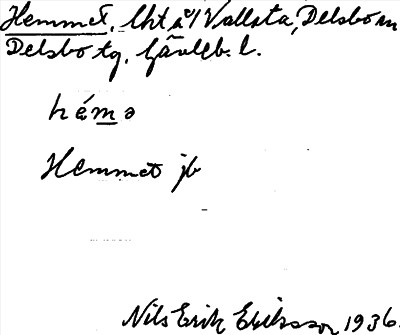 Hemmet, lht å Vallsta, Delsbo sn
Delsbo tg, Gävleb. l.
hémə
Hemmet jb
Nils Erik Eriksson 1936.